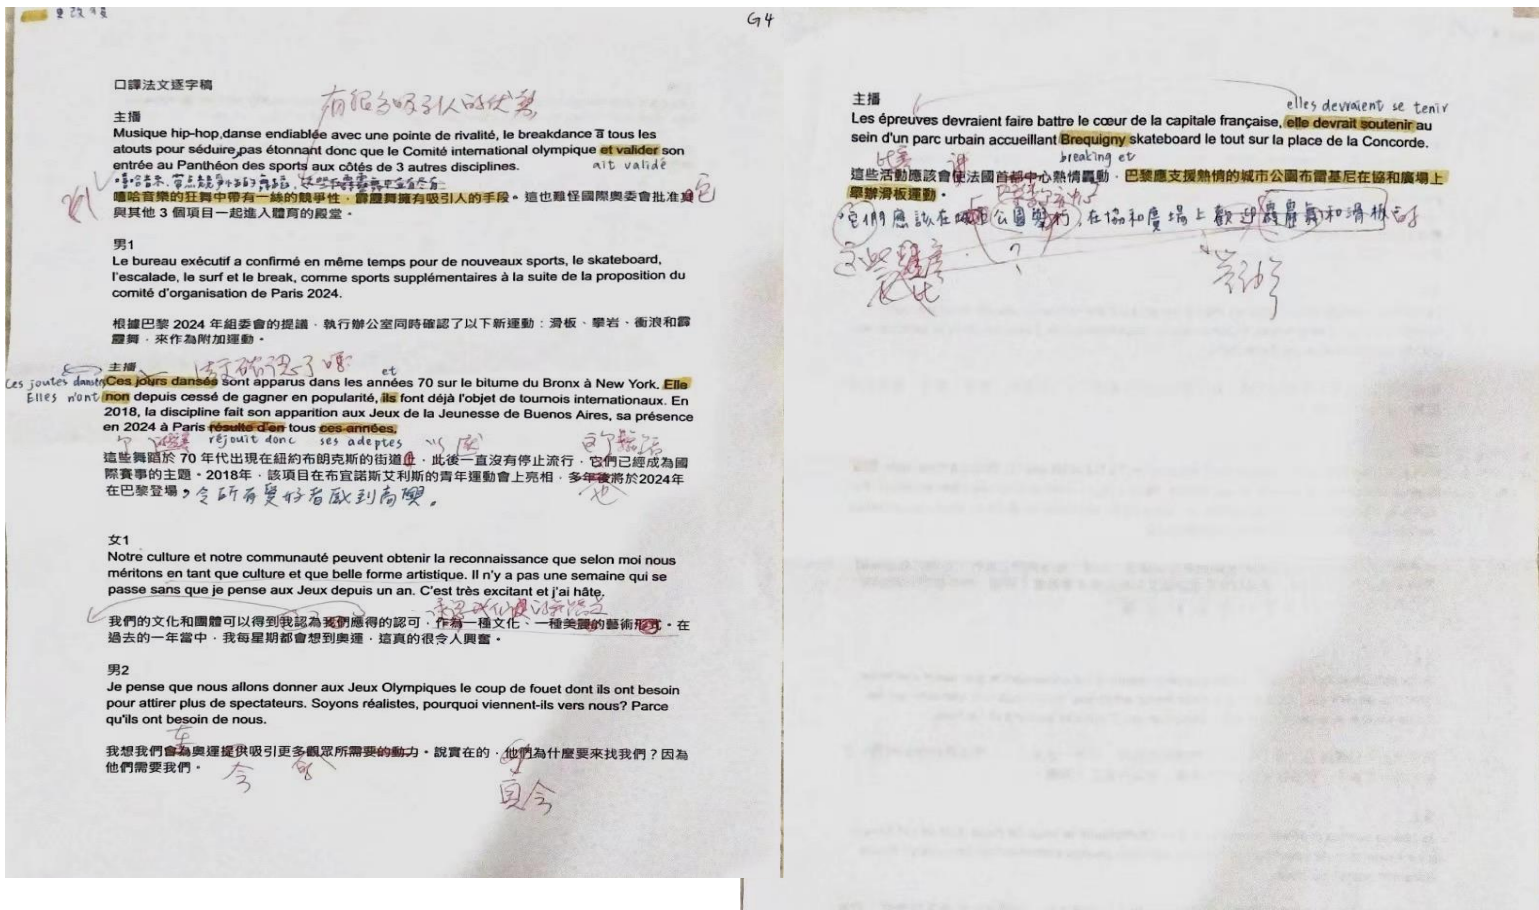 更改後
G4
口譯法文逐字稿
有很多吸引人的优势
主播
Musique hip-hop,danse endiablée avec une pointe de rivalité, le breakdance a tous les
atouts pour séduire,pas étonnant donc que le Comité international olympique et valider son
entrée au Panthéon des sports aux côtés de 3 autres disciplines.
ait validé
嘻哈音樂的狂舞中帶有一絲的競爭性，霹靂舞擁有吸引人的手段。這也難怪國際奧委會批准
與其他 3 個項目一起進入體育的殿堂。
男1
Le bureau exécutif a confirmé en même temps pour de nouveaux sports, le skateboard,
l'escalade, le surf et le break, comme sports supplémentaires à la suite de la proposition du
comité d'organisation de Paris 2024.
根據巴黎 2024 年組委會的提議，執行辦公室同時確認了以下新運動：滑板、攀岩、衝浪和霹
靂舞，來作為附加運動。
主播
et
Ces joutes dansées
Ces jours dansés sont apparus dans les années 70 sur le bitume du Bronx à New York. Elle
Elles n'ont
non depuis cessé de gagner en popularité, ils font déjà l'objet de tournois internationaux. En
2018, la discipline fait son apparition aux Jeux de la Jeunesse de Buenos Aires, sa présence
en 2024 à Paris résulte d'en tous ces années.
réjouit donc ses adeptes
這些舞蹈於 70 年代出現在紐約布朗克斯的街道上，此後一直沒有停止流行，它們已經成為國
際賽事的主題。2018年，該項目在布宜諾斯艾利斯的青年運動會上亮相，多年後將於2024年
在巴黎登場，令所有愛好者感到高興。
女1
Notre culture et notre communauté peuvent obtenir la reconnaissance que selon moi nous
méritons en tant que culture et que belle forme artistique. Il n'y a pas une semaine qui se
passe sans que je pense aux Jeux depuis un an. C'est très excitant et j'ai hâte.
我們的文化和團體可以得到我認為我們應得的認可，作為一種文化、一種美麗的藝術形式。在
過去的一年當中，我每星期都會想到奧運，這真的很令人興奮。
男2
Je pense que nous allons donner aux Jeux Olympiques le coup de fouet dont ils ont besoin
pour attirer plus de spectateurs. Soyons réalistes, pourquoi viennent-ils vers nous? Parce
qu'ils ont besoin de nous.
我想我們會為奧運提供吸引更多觀眾所需要的動力。說實在的，他們為什麼要來找我們？因為
他們需要我們。
主播
elles devraient se tenir
Les épreuves devraient faire battre le cœur de la capitale française, elle devrait soutenir au
sein d'un parc urbain accueillant Brequigny skateboard le tout sur la place de la Concorde.
breaking et
這些活動應該會使法國首都中心熱情轟動，巴黎應支援熱情的城市公園布雷基尼在協和廣場上
舉辦滑板運動。
它們應該在城市公園舉行，在協和廣場上歡迎霹靂舞和滑板